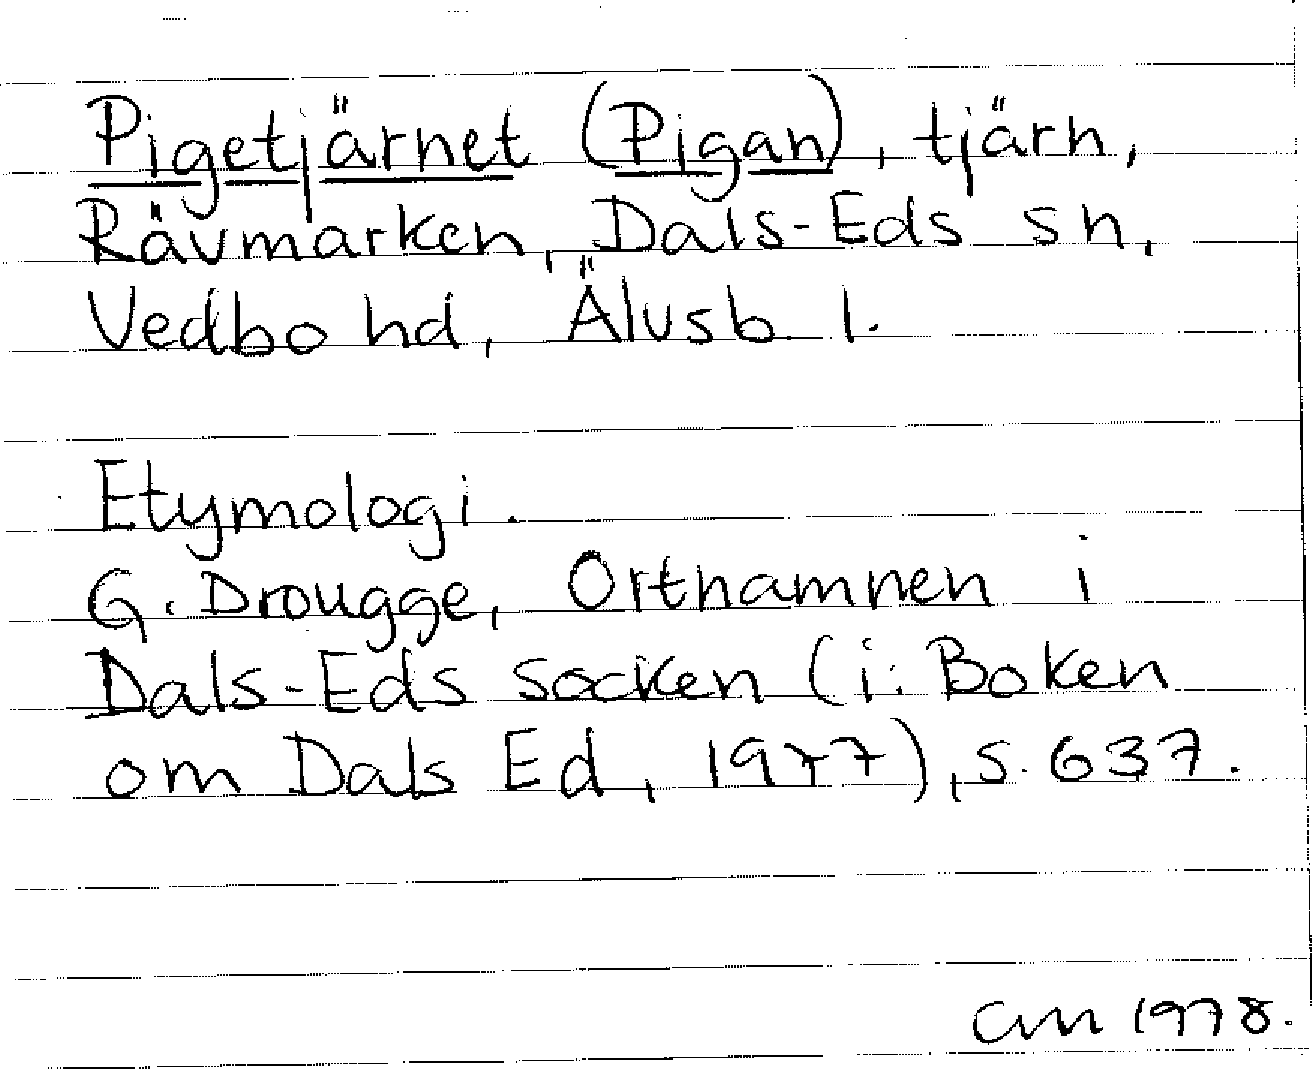 Pigetjärnet (Pigan), tjärn,
Rävmarken, Dals-Eds sn,
Vedbo hd, Älvsb. l.
Etymologi.
G. Drougge, Ortnamnen i
Dals-Eds socken (i: Boken
om Dals Ed, 1977), s. 637.
CM 1978.